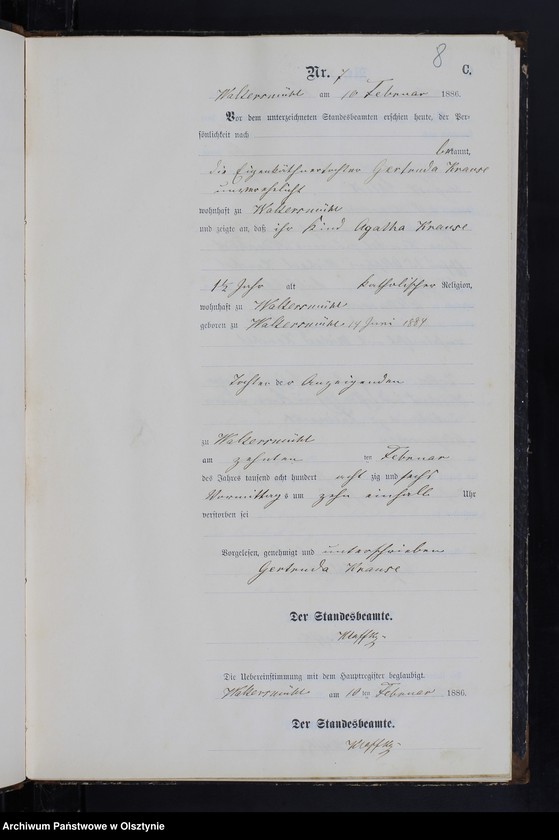 8
Nr. 7 C.
Waltersmühl am 10 Februar 1886.
Vor dem unterzeichneten Standesbeamten erschien heute, der Per-
sönlichkeit nach
bekannt,
die Eigenkäthnertochter Gertruda Krause
unverehelicht
wohnhaft zu Waltersmühl
und zeigte an, daß ihr Kind Agatha Krause
1½ Jahr alt katholischer Religion,
wohnhaft zu Waltersmühl
geboren zu Waltersmühl Juni 1884
Tochter der Anzeigenden
zu Waltersmühl
am zehnten ten Februar
des Jahres tausend acht hundert acht zig und sechs
Vormittags um zehn einhalb Uhr
verstorben sei
Vorgelesen, genehmigt und unterschrieben
Gertruda Krause
Der Standesbeamte.
Die Uebereinstimmung mit dem Hauptregister beglaubigt.
Waltersmühl am 10 ten Februar 1886.
Der Standesbeamte.
Archiwum Państwowe w Olsztynie